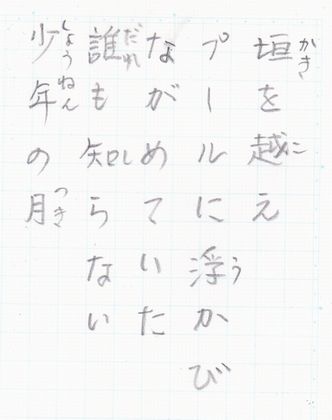 垣を越え
プールに浮かび
ながめていた
誰も知らない
少年の月
かき
こ
う
だれ
し
しょうねん
つき